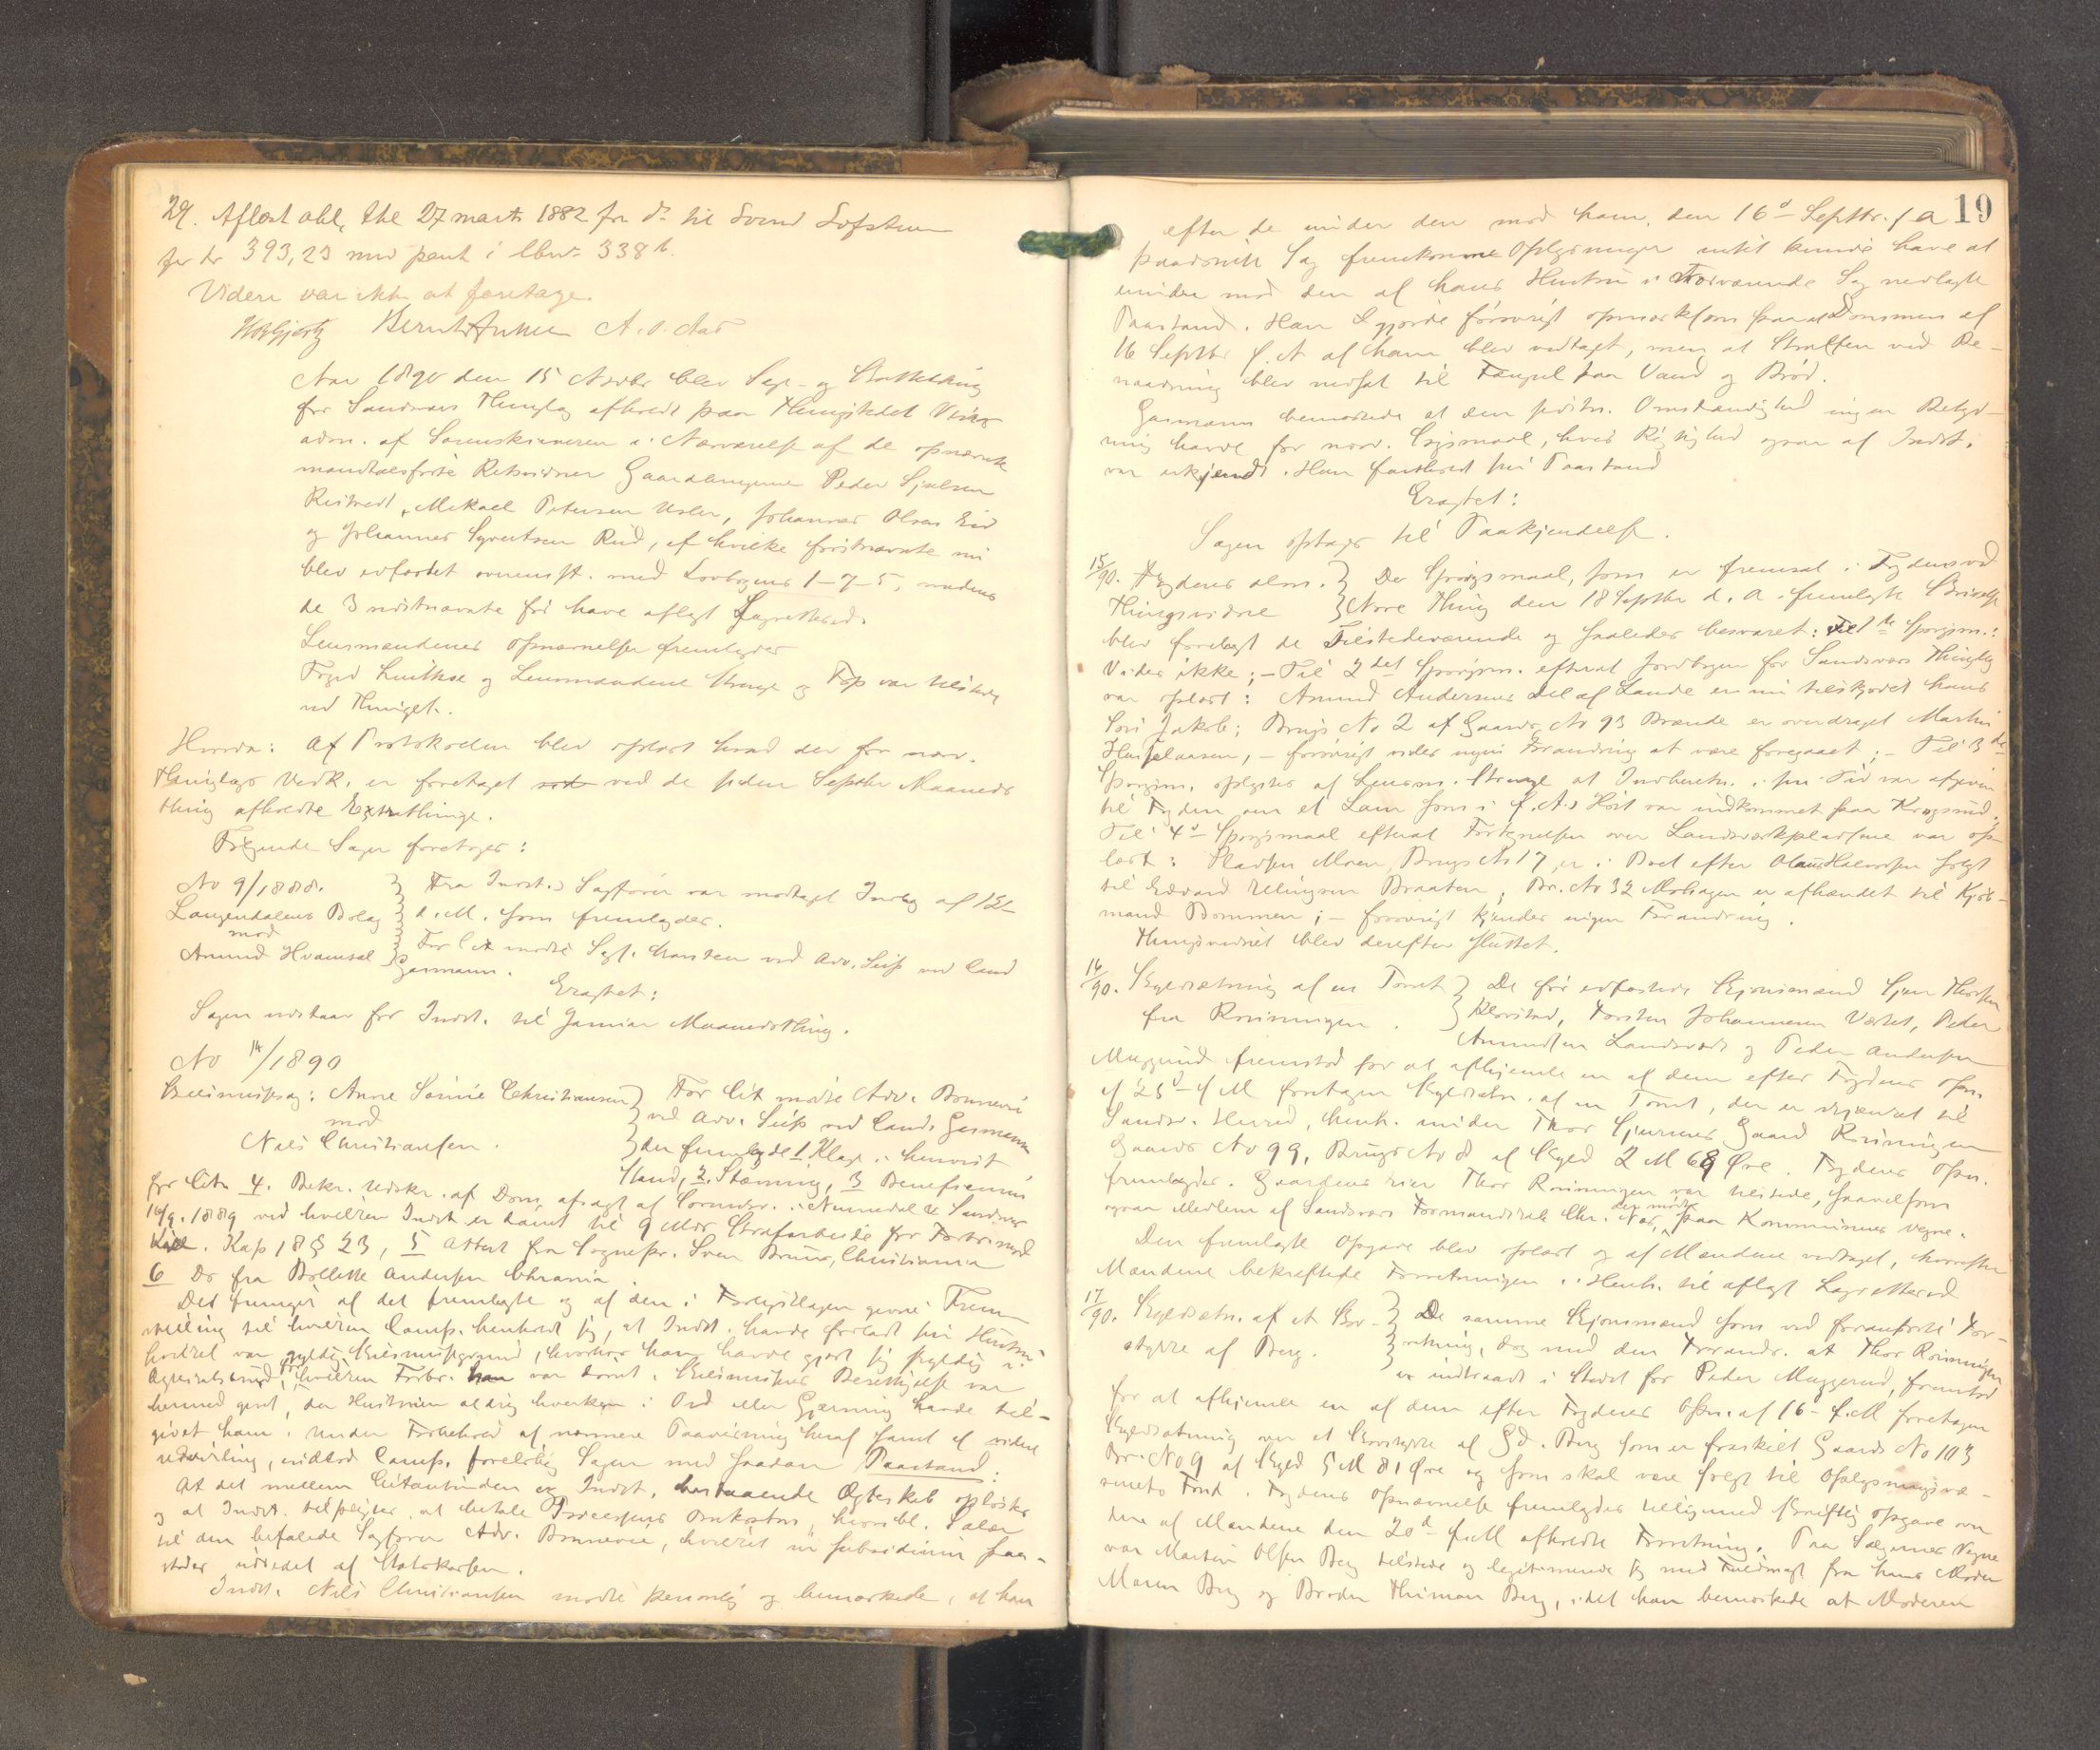 29. Aflæst obl. dtd 27 marts 1882 fra do til Svend Lofstuen
for kr 393,23 med pant i lbnr. 338 b.
Videre var ikke at foretage.
A. O. Aas
Aar 1890 den 15 Novbr blev Sage- og Skattething
for Sandsvær Thinglag afholdt paa Thingstedet
adm. af Sorenskriveren i Nærværelse af de opnævnte
mandtalsførte Retsvidner Gaardbrugerne Peder
Mikael Petersen Usler, Johannes Olsen Eid
og Johannes Syvertsen Rud, af hvilke førstnævnte nu
blev edfæstet overensst. med Lovbogens 1-7-5, medens
de 3 sidstnævnte før have aflagt Lagretteed.
Lensmændenes Opnævnelse fremlagdes
Foged og Lensmændene Strange og Fos var tilstede
ved Thinget.
Hvorda: Af Protokollen blev oplæst hvad der for nærv.
Thinglags Vedk. er foretaget ved de siden Septbr Maaneds
thing afholdte Extrathinge.
Følgende Sager foretoges:
No 9/1888.
Langendalens Bolag
mod
Amund Hvamsal
Fra Indst.s Sagfører var modtaget Indlæg af 12te
d. M. som fremlagdes.
For Cit mødte Sagf. Hansteen ved Adv. Seip ved Cand
Gasmann.
Eragtet:
Sagen udstaar for Indst. til Januar Maanedsthing.
No 14/1890
Skilsmissesag: Anne Christiansen
mod
Nils Christiansen.
For Cit mødte Adv.
ved Adv. Seip ved Cand. Gasmann
der fremlagde 1 Klage i henvist
Stand, 2. Stævning, 3 Beneficium
for Cit. 4. Bekr. Udskr. af Dom, afsagt af Sorenskr. i Numedal & Sandsvær
16/9. 1889 ved hvilken Indst er dømt til 9 Mdrs Strafarbeide for Forbr. mod
Kap 18 § 23, 5 Attest fra Sognepr. Sven Bruun, Christiania
6 Do fra Andersen Chrania.
Det fremgik af det fremlagte og af den i Forligsklagen givne Frem
stilling til hvilken Comp. henholdt sig, at Indst. havde forladt sin Hustru
hvilket var gyldig Skilsmissegrund, hvorhos han havde gjort sig skyldig i
for hvilken Forbr. han var dømt. Skilsmissens Berettigelse var
hermed givet, da Hustruen aldrig hverken i Ord eller Gjerning havde til-
givet ham. Under Forbehold af nærmere Paavisning heraf samt af videre
udvikling, indlod Comp. foreløbig Sagen med saadan Paastand:
At det mellem Citantinden og Indst. bestaaende Ægteskab opløses
og at Indst. tilpligtes at betale Processens Omkostn., herunder Salær
til den befalede Sagfører Adv. hvilket in subsidium paa-
staaes udredet af Statskassen.
Indst. Nils Christiansen mødte personlig og bemærkede, at han
19
efter de under den mod ham den 16de Septbr. f. A
paadømte Sag fremkomne Oplysninger intet kunde have at
erindre mod den af hans Hustru i nærværende Sag nedlagte
Paastand. Han gjorde forøvrigt opmærksom paa at Dommen af
16 Septbr f. A. af ham blev vedtaget, men at Straffen ved Be-
naadning blev nedsat til Fængsel paa Vand og Brød.
Gasmann bemærkede at den sidstn. Omstændighed ingen Betyd-
ning havde for nærv. Søgsmaal, hvis Rigtighed ogsaa af Indst.
var erkjendt. Han fastholdt sin Paastand
Eragtet:
Sagen optages til Paakjendelse.
15/90. Fogdens alm.
Thingsvidne
De Spørgsmaal, som er fremsat i Fogdens ved
Nore Thing den 18 Septbr d. A. fremlagte Skrivelse
blev forelagt de Tilstedeværende og saaledes besvaret: Til 1ste Spørgsm.:
Vides ikke; - Til 2det Spørgsm. efterat Jordbogen for Sandsvær Thinglag
var oplæst: Amund Andersens Del af Lande er nu tilskjødet hans
Søn Jakob; Brugs No 2 af Gaards No 93 Brænde er overdraget Martin
forøvrigt vides ingen Forandring at være foregaaet; - Til 3die
Spørgsm. oplystes af Lensm. Strange at Indberetn. i sin Tid var afgiven
til Fogden om et Lam som i f. A.s Høst var indkommet paa
Til 4de Spørgsmaal efterat Fortegnelsen over Landværkpladsene var op
læst: Pladsen Moen Brugs No 17 er i Boet efter Olaus Halvorsen solgt
til Edvard Braaten, Br. No 32 er afhændet til Kjøb-
mand Bommen; - forøvrigt kjendes ingen Forandring.
Thingsvidnet blev derefter sluttet.
16/90. Skyldsætning af en Tomt
fra Rønningen.
De før edfæstede Skjønsmænd
Torsten Johannesen Peder
Amundsen Landsværk og Peder Andersen
Muggerud fremstod for at afhjemle en af dem efter Fogdens Opn.
af 25de f. M foretagen Skyldsætn. af en Tomt, der er skjænket til
Sandsv. Herred, henh. under Thor Gaard Rønningen
Gaards No 99, Brugs No 8 af Skyld 2 M 69 Øre. Fogdens Opn.
fremlagdes. Gaardens Eier Thor Rønningen var tilstede, saavelsom
ogsaa Medlem af Sandsvær Formandskab Chr. der mødte paa Kommunens Vegne.
Den fremlagte Opgave blev oplæst og af Mændene vedtaget, hvorefter
Mændene bekræftede Forretningen i Henh. til aflagt Lagretteeed
17/90. Skyldsætn. af et Skov-
stykke af Berg.
De samme Skjønsmænd som ved foranførte For-
retning, dog med den Forandr. at Thor Rønningen
er indtraadt i Stedet for Peder Muggerud, fremstod
for at afhjemle en af dem efter Fogdens Opn. af 16 f. M foretagen
Skyldsætning over et Skovstykke af Gd. Berg som er fraskilt Gaards No 103
Br. No 9 af Skyld 5 M 81 Øre og som skal være solgt til Oplysningsvæ-
senets Fond. Fogdens Opnævnelse fremlagdes tilligemed skriftlig Opgave over
den af Mændene den 20de f. M afholdte Forretning. Paa Sælgernes Vegne
var Martin Olsen Berg tilstede og legitimerede sig med Fuldmagt fra hans Moder
Maren Berg og Broder Berg, idet han bemærkede at Moderen